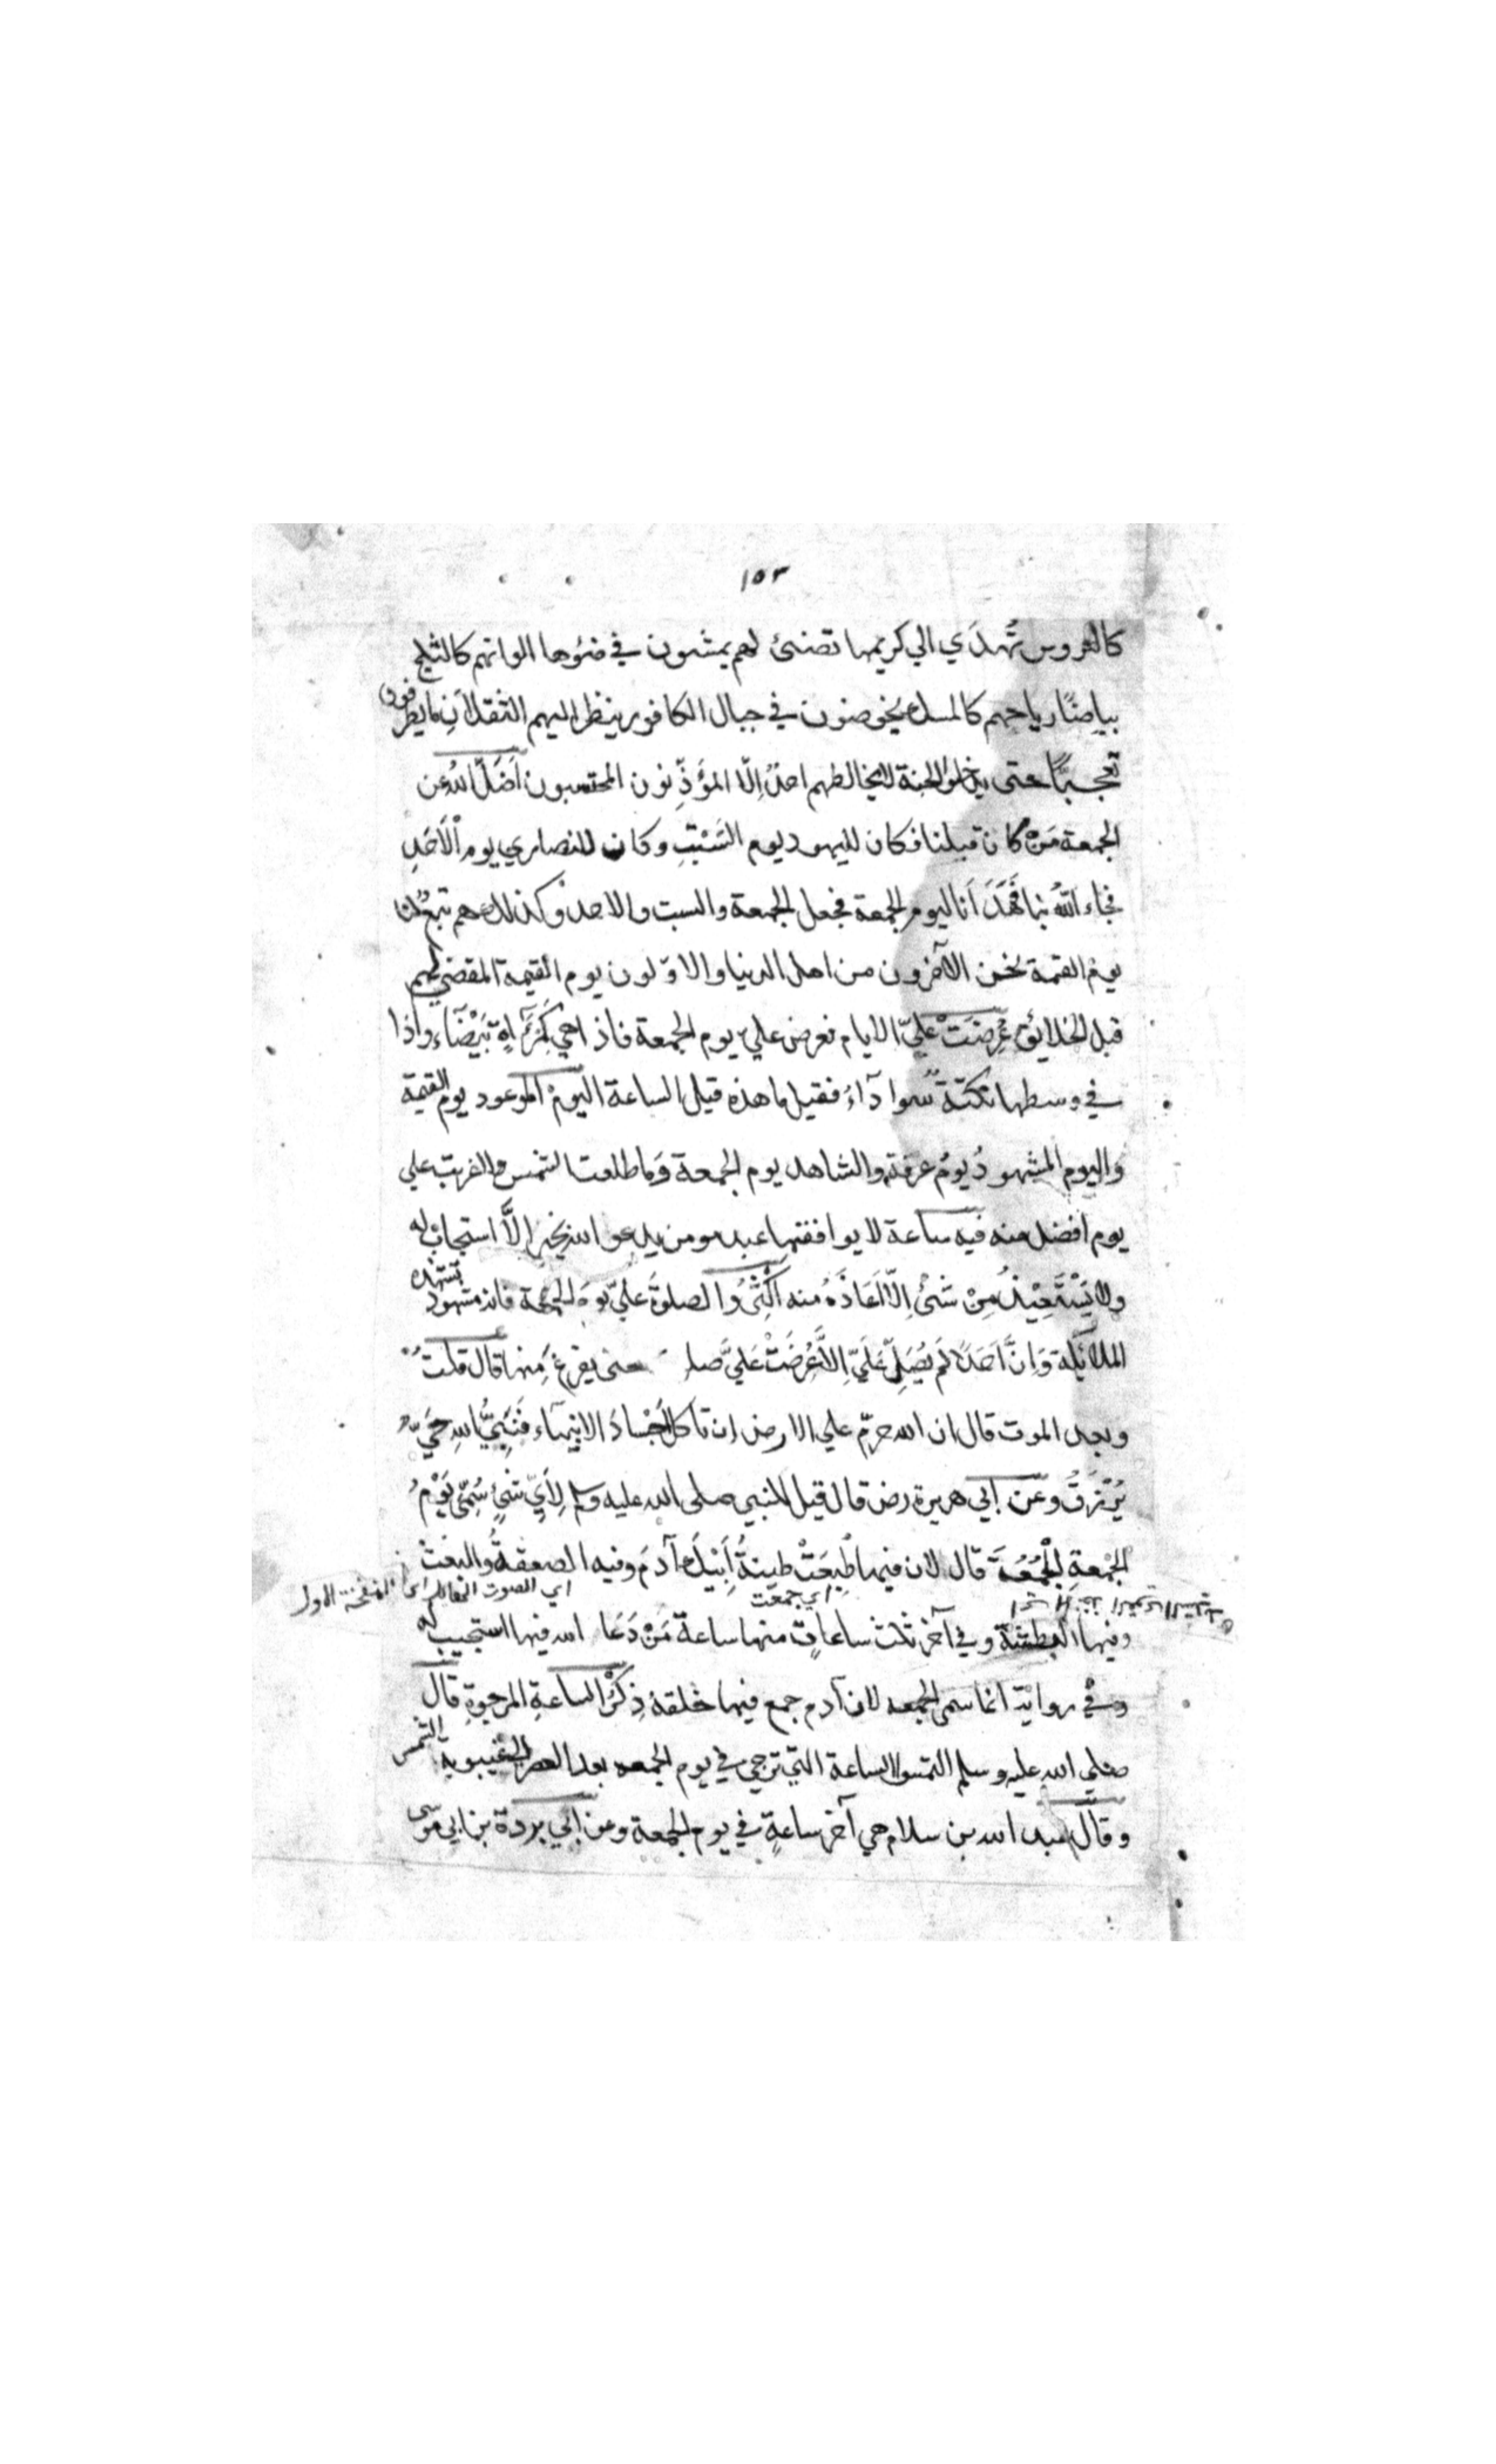 ١٥٣
كالعروس تُهدَي الي كريمها تضئ لهم يمشون في ضوءها الوانهم كالثلج
بياضًا رياحهم كالمسك يخوضون في جبال الكافور ينظر اليهم الثقلانِ ما يطرفون
تعجبًا حتى يدخلوا الجنة لا يخالطهم احدٌ اِلّا المؤذِّنون المحتسبون اَضَلَّ اللهُ عن
الجمعة مَنْ كان قبلنا فكان لليهود يوم السَّبْتِ وكان للنصاري يوم الْاَحَدِ
فجاء اللهُ بنا فَهَدَانا ليوم الجمعة فجعل الجمعة والسبت والاحد وكذلك هم تبعٌ لنا
يوم القيمة نحن الآخرون من اهل الدنيا والاوّلون يوم القيمة المقضي لهم
قبل الخلائق عُرِضَتْ عليّ الايام فعرض عليّ يوم الجمعة فاذا هي كَمِرْآةٍ بَيْضَاء واذا
في وسطها نكتة سوداءُ فقيل ما هذه قيل الساعة اليومُ الموعود يوم القيمة
واليوم المشهودُ يومُ عرفة والشاهد يوم الجمعة وما طلعت الشمس ولا غربت علي
يوم افضل منه فيه ساعة لا يوافقها عبد مومن يدعو الله بخير اِلَّا استجاب له
ولا يَسْتَعِيْذُ مِنْ شئ اِلّا اَعَاذَهُ منه اَكْثِرُوا الصلوةَ عليّ يومَ الجمعة فانه مشهود تشهده
الملائكة وَاِنَّ اَحَدًا لَم يُصَلِّ عَلَيّ اِلَّا عُرِضَتْ عَلَيَّ صلا حتى يفرغ مِنها قال قلتُ
وبعد الموت قال ان الله حرّم علي الارض ان تاكل اَجْسادَ الانبياء فَنَبِيُّ اللهِ حَيٌّ
يُرْزَقُ وعَن ابي هريرة رض قال قيل للنبي صلى الله عليه وسلم لِاَيِّ شئٍ سُمِّيَ يَوْمُ
الجُمْعةِ الْجُمُعَة قال لان فيها طُبِعَتْ طينةُ اَبِيْكَ آدمَ وفيه الصعقةُ والبعث
اي جمعت
اي الصوت الهائل اي النفخة الاولي
وفيها البطشة وفي آخر ثلث ساعاتٍ منها ساعة مَنْ دَعَا الله فيها استجيب له
وفي رواية انما سمي الجمعه لان آدم جمع فيها خلقهُ ذِكْرُ الساعةِ المرجوةِ قال
صلي الله عليه وسلم التمسوا الساعة التي ترجي في يوم الجمعه بعد العصر الي غيبوبة الشمس
وقال عبد الله بن سلام هي آخر ساعةٍ في يوم الجمعة وعن ابي بردة بن ابي موسي